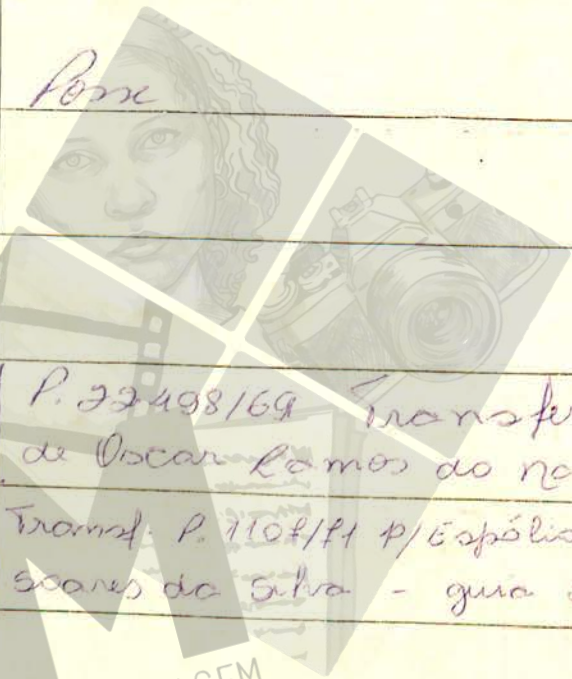 Posse
P. 22498/69 Transfer
de Oscar Ramos do na
Transf. P. 1107/71 p/ Espólio
soares da silva - guia